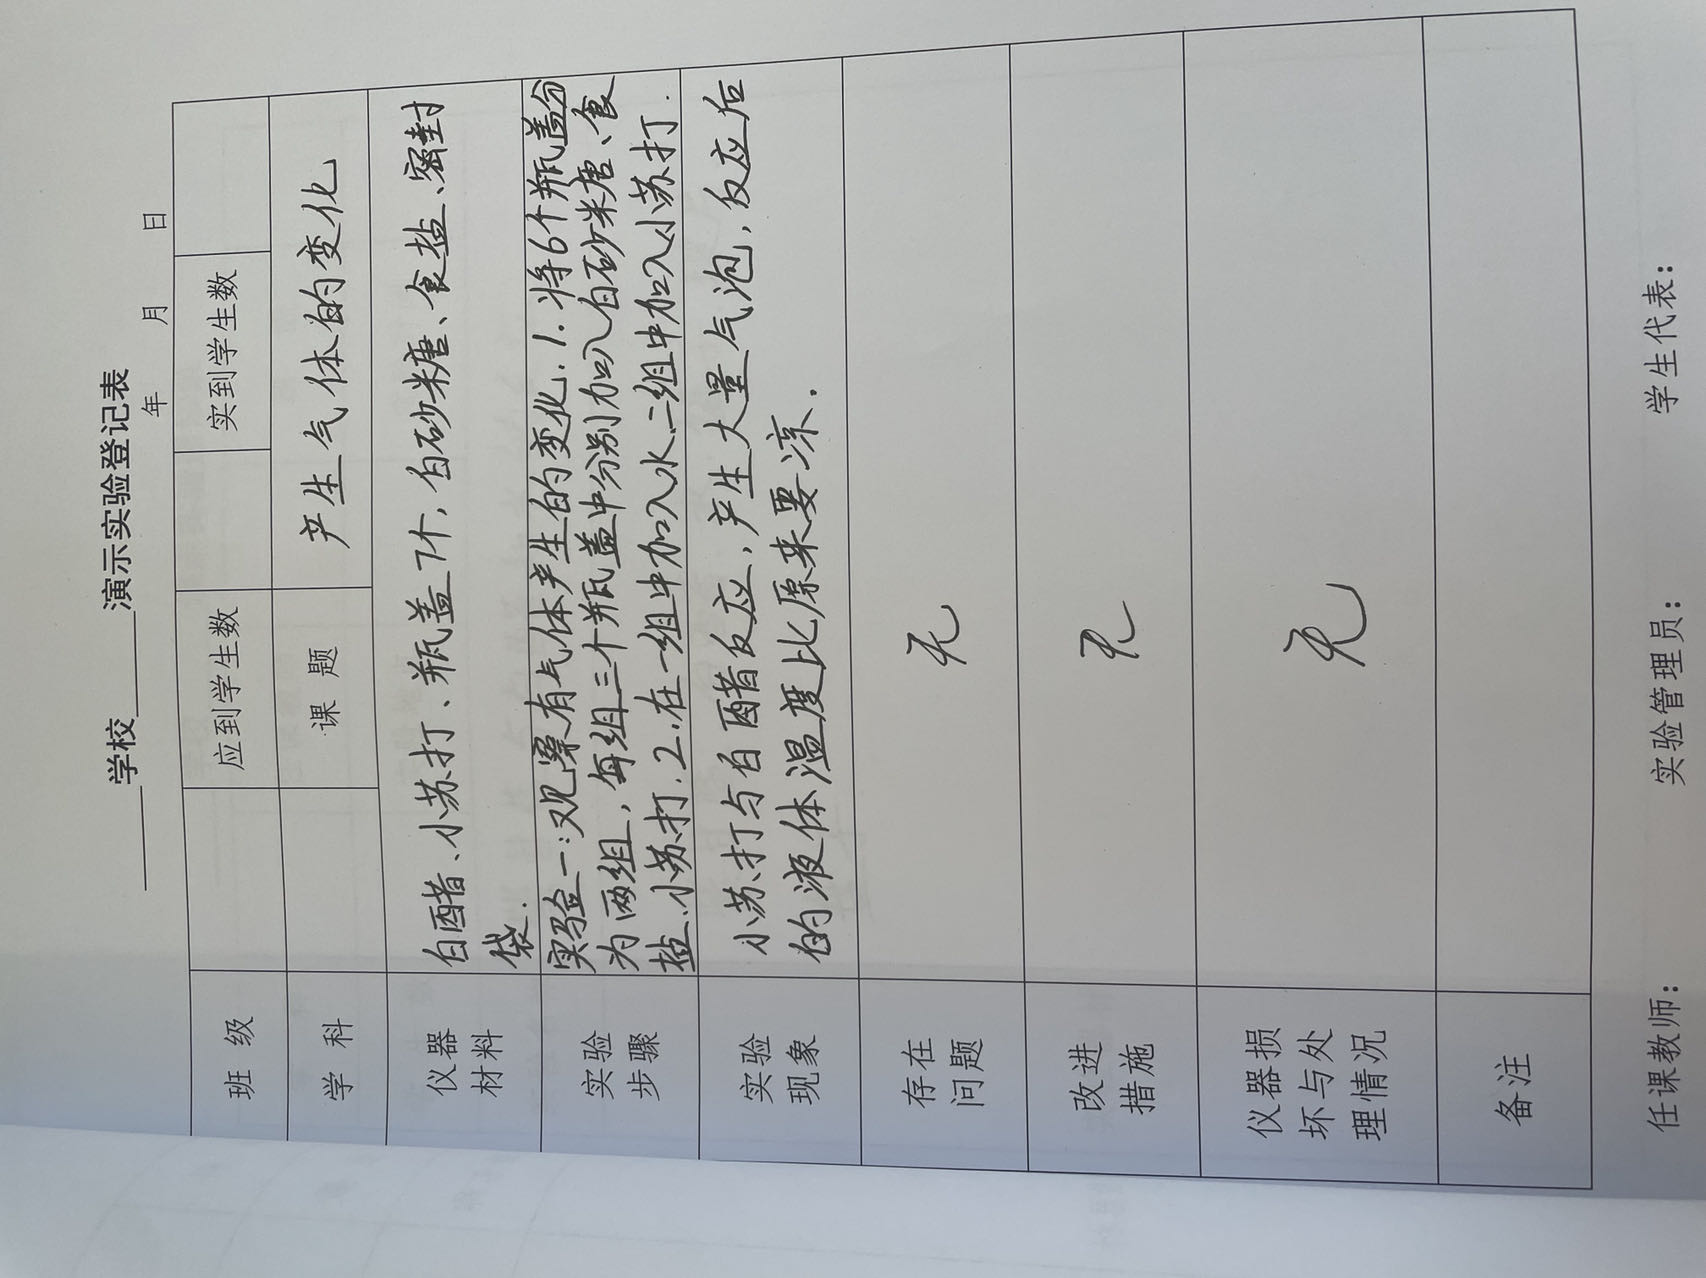 学校 演示实验登记表
年 月 日
班 级 应到学生数 实到学生数
学 科 课 题 产生气体的变化
仪器
材料
白醋、小苏打、瓶盖7个,白砂糖、食盐、密封
袋.
实验
步骤
实验一:观察有气体产生的变化.1.将6个瓶盖分
为两组,每组三个瓶盖中分别加入白砂糖、食
盐、小苏打.2.在一组中加入水、二组中加入小苏打.
实验
现象
小苏打与白醋反应,产生大量气泡,反应后
的液体温度比原来要凉.
存在
问题
无
改进
措施
无
仪器损
坏与处
理情况
无
备注
任课教师: 实验管理员: 学生代表: